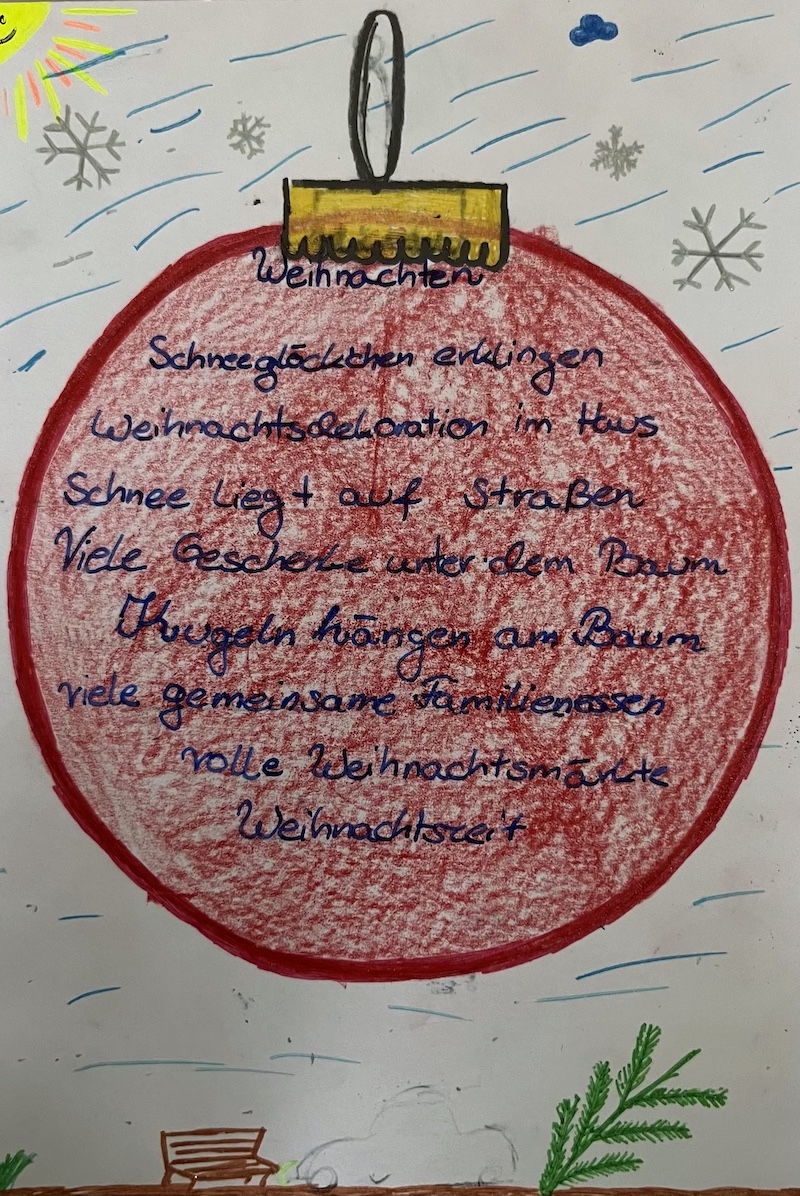 Weihnachten
Schneeglöckchen erklingen
Weihnachtsdekoration im Haus
Schnee liegt auf Straßen
Viele Geschenke unter dem Baum
Kugeln hängen am Baum
viele gemeinsame Familienessen
volle Weihnachtsmärkte
Weihnachtszeit